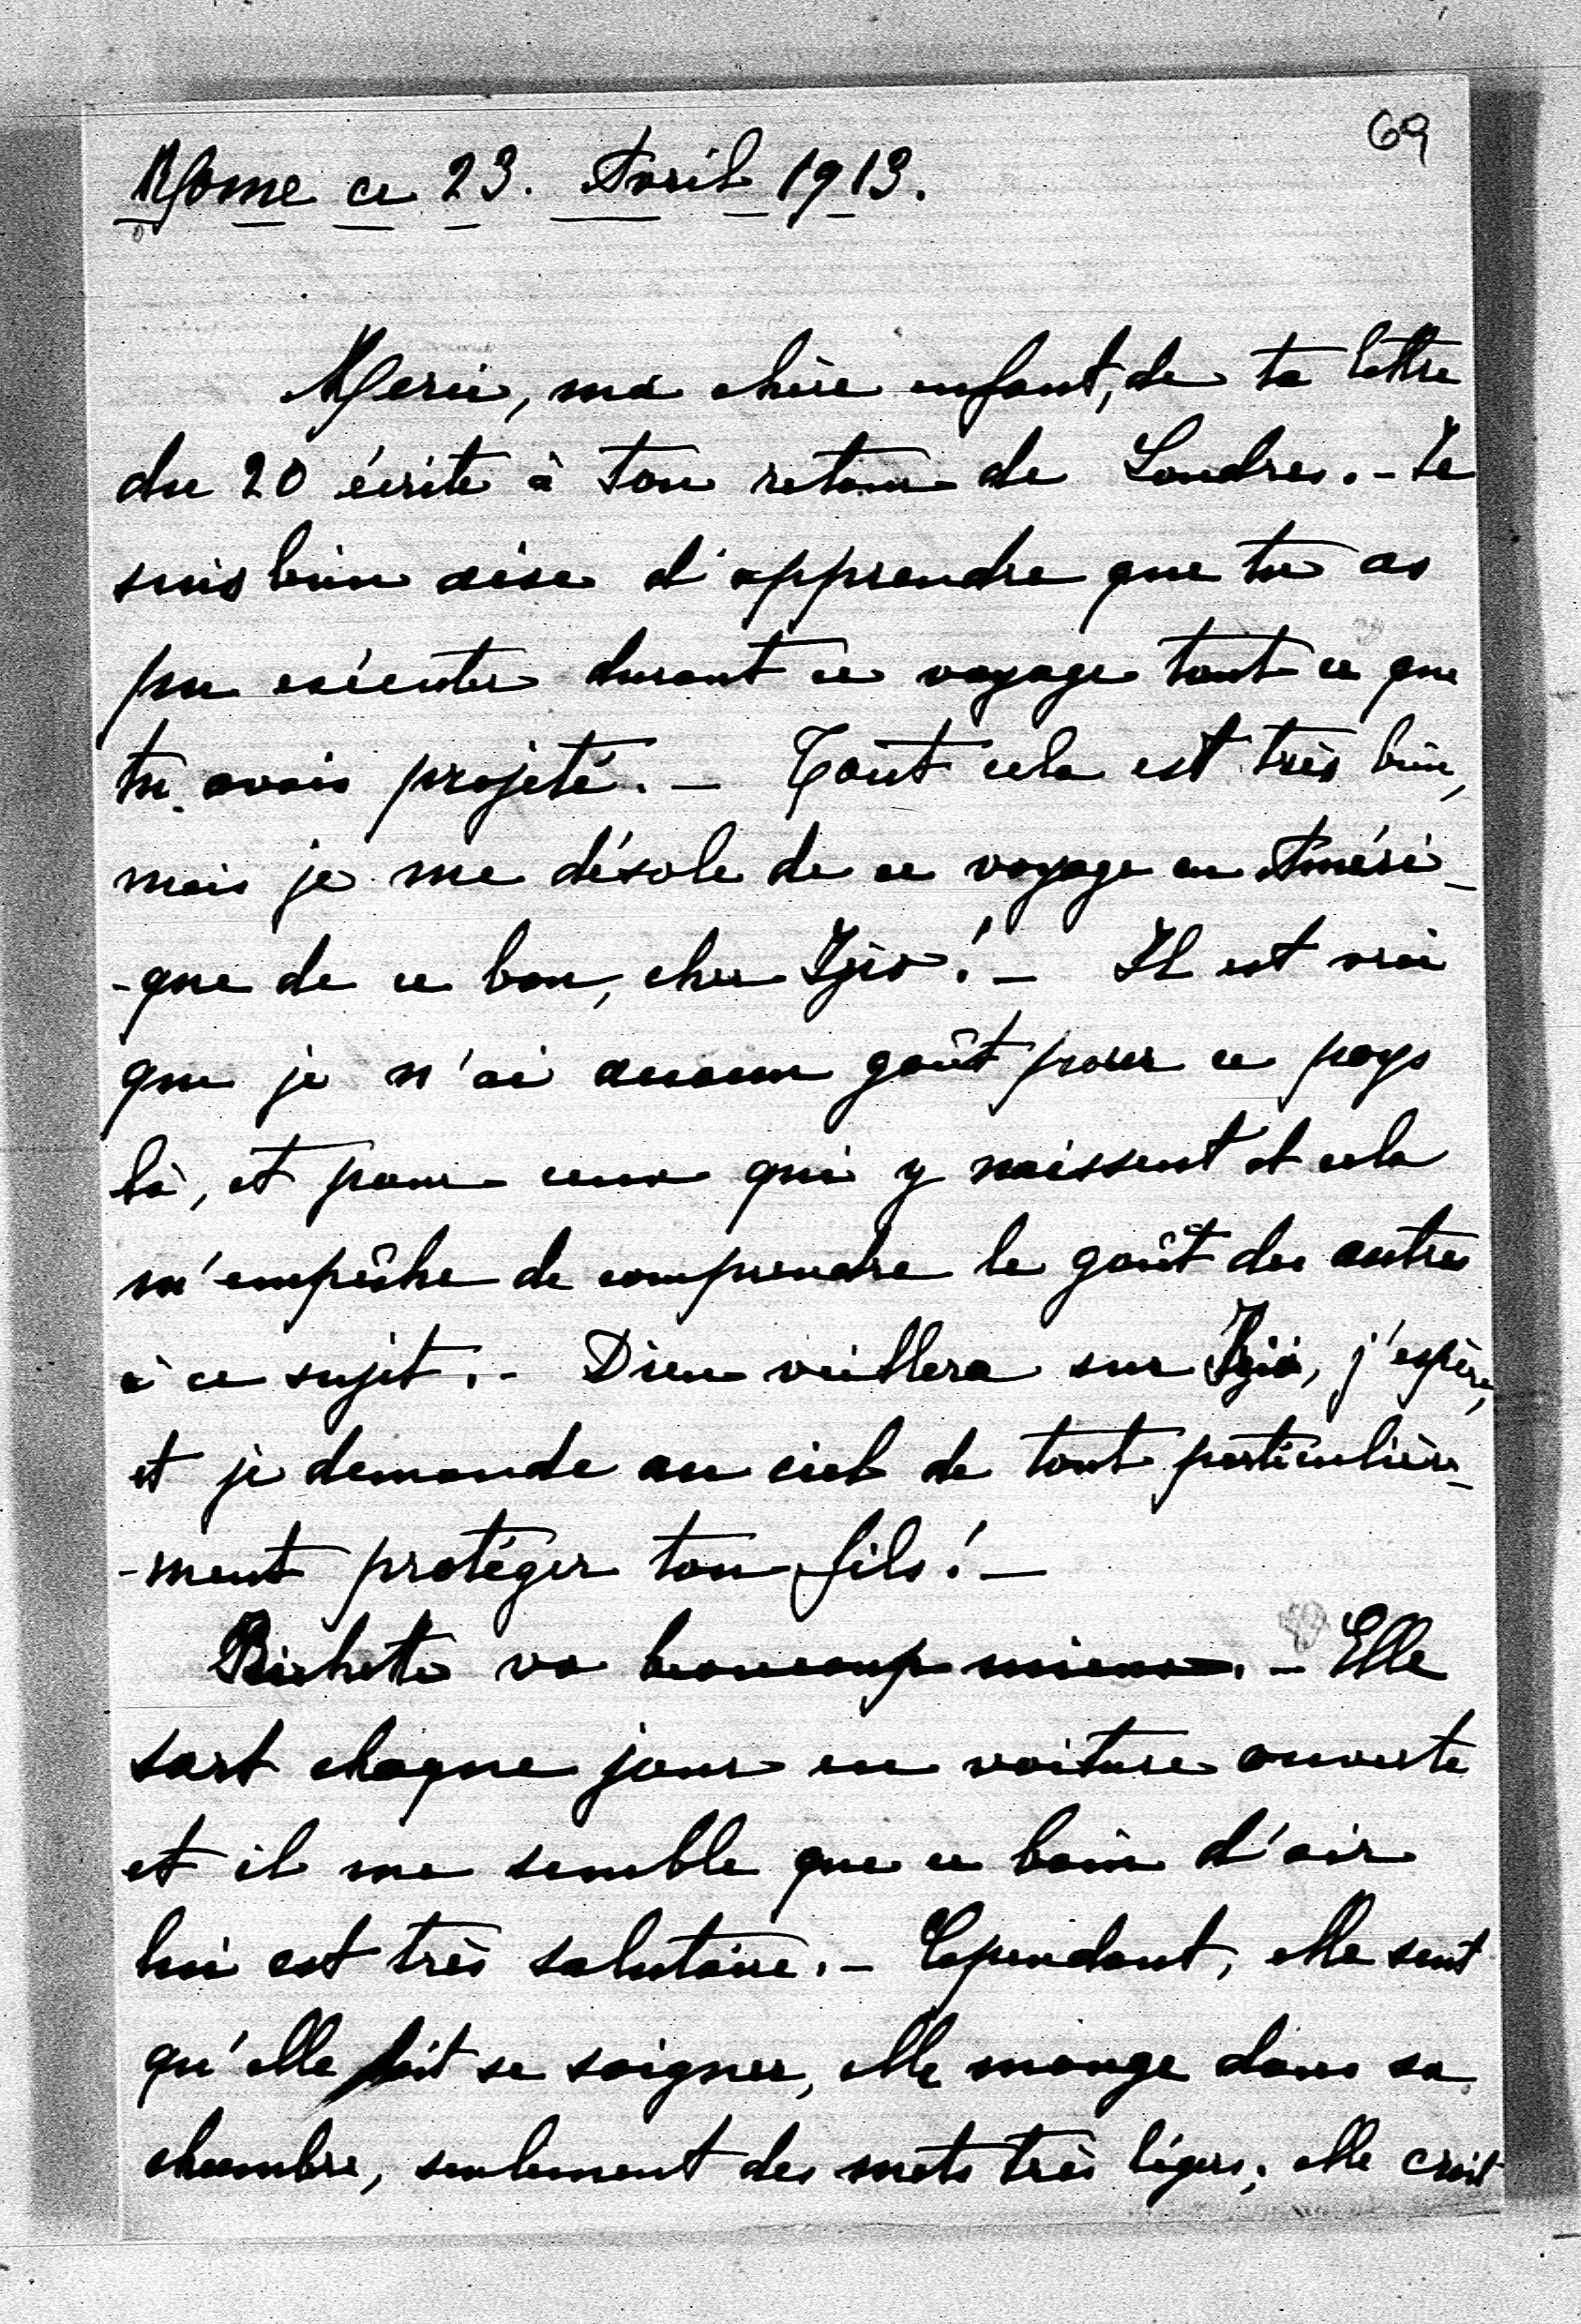 69
Rome ce 23. Avril 1913.
Merci, ma chère enfant, de ta lettre
du 20 écrite à ton retour de Londres. - Je
suis bien aise d'apprendre que tu as
pu exécuter durant ce voyage tout ce que
tu avais projeté. - Tout cela est très bien,
mais je me désole de ce voyage en Améri-
-que de ce bon, cher Igio! - Il est vrai
que je n'ai aucun goût pour ce pays
là, et pour ceux qui y naissent et cela
m'empêche de comprendre le goût des autres
à ce sujet. - Dieu veillera sur Igio, j'espère,
et je demande au ciel de tout particulière-
-ment protéger ton fils! -
Bichette va beaucoup mieux. - Elle
sort chaque jour en voiture ouverte
et il me semble que ce bain d'air
lui est très salutaire. - Cependant, elle sent
qu'elle doit se soigner, elle mange dans sa
chambre, seulement des mets très légers; elle croit